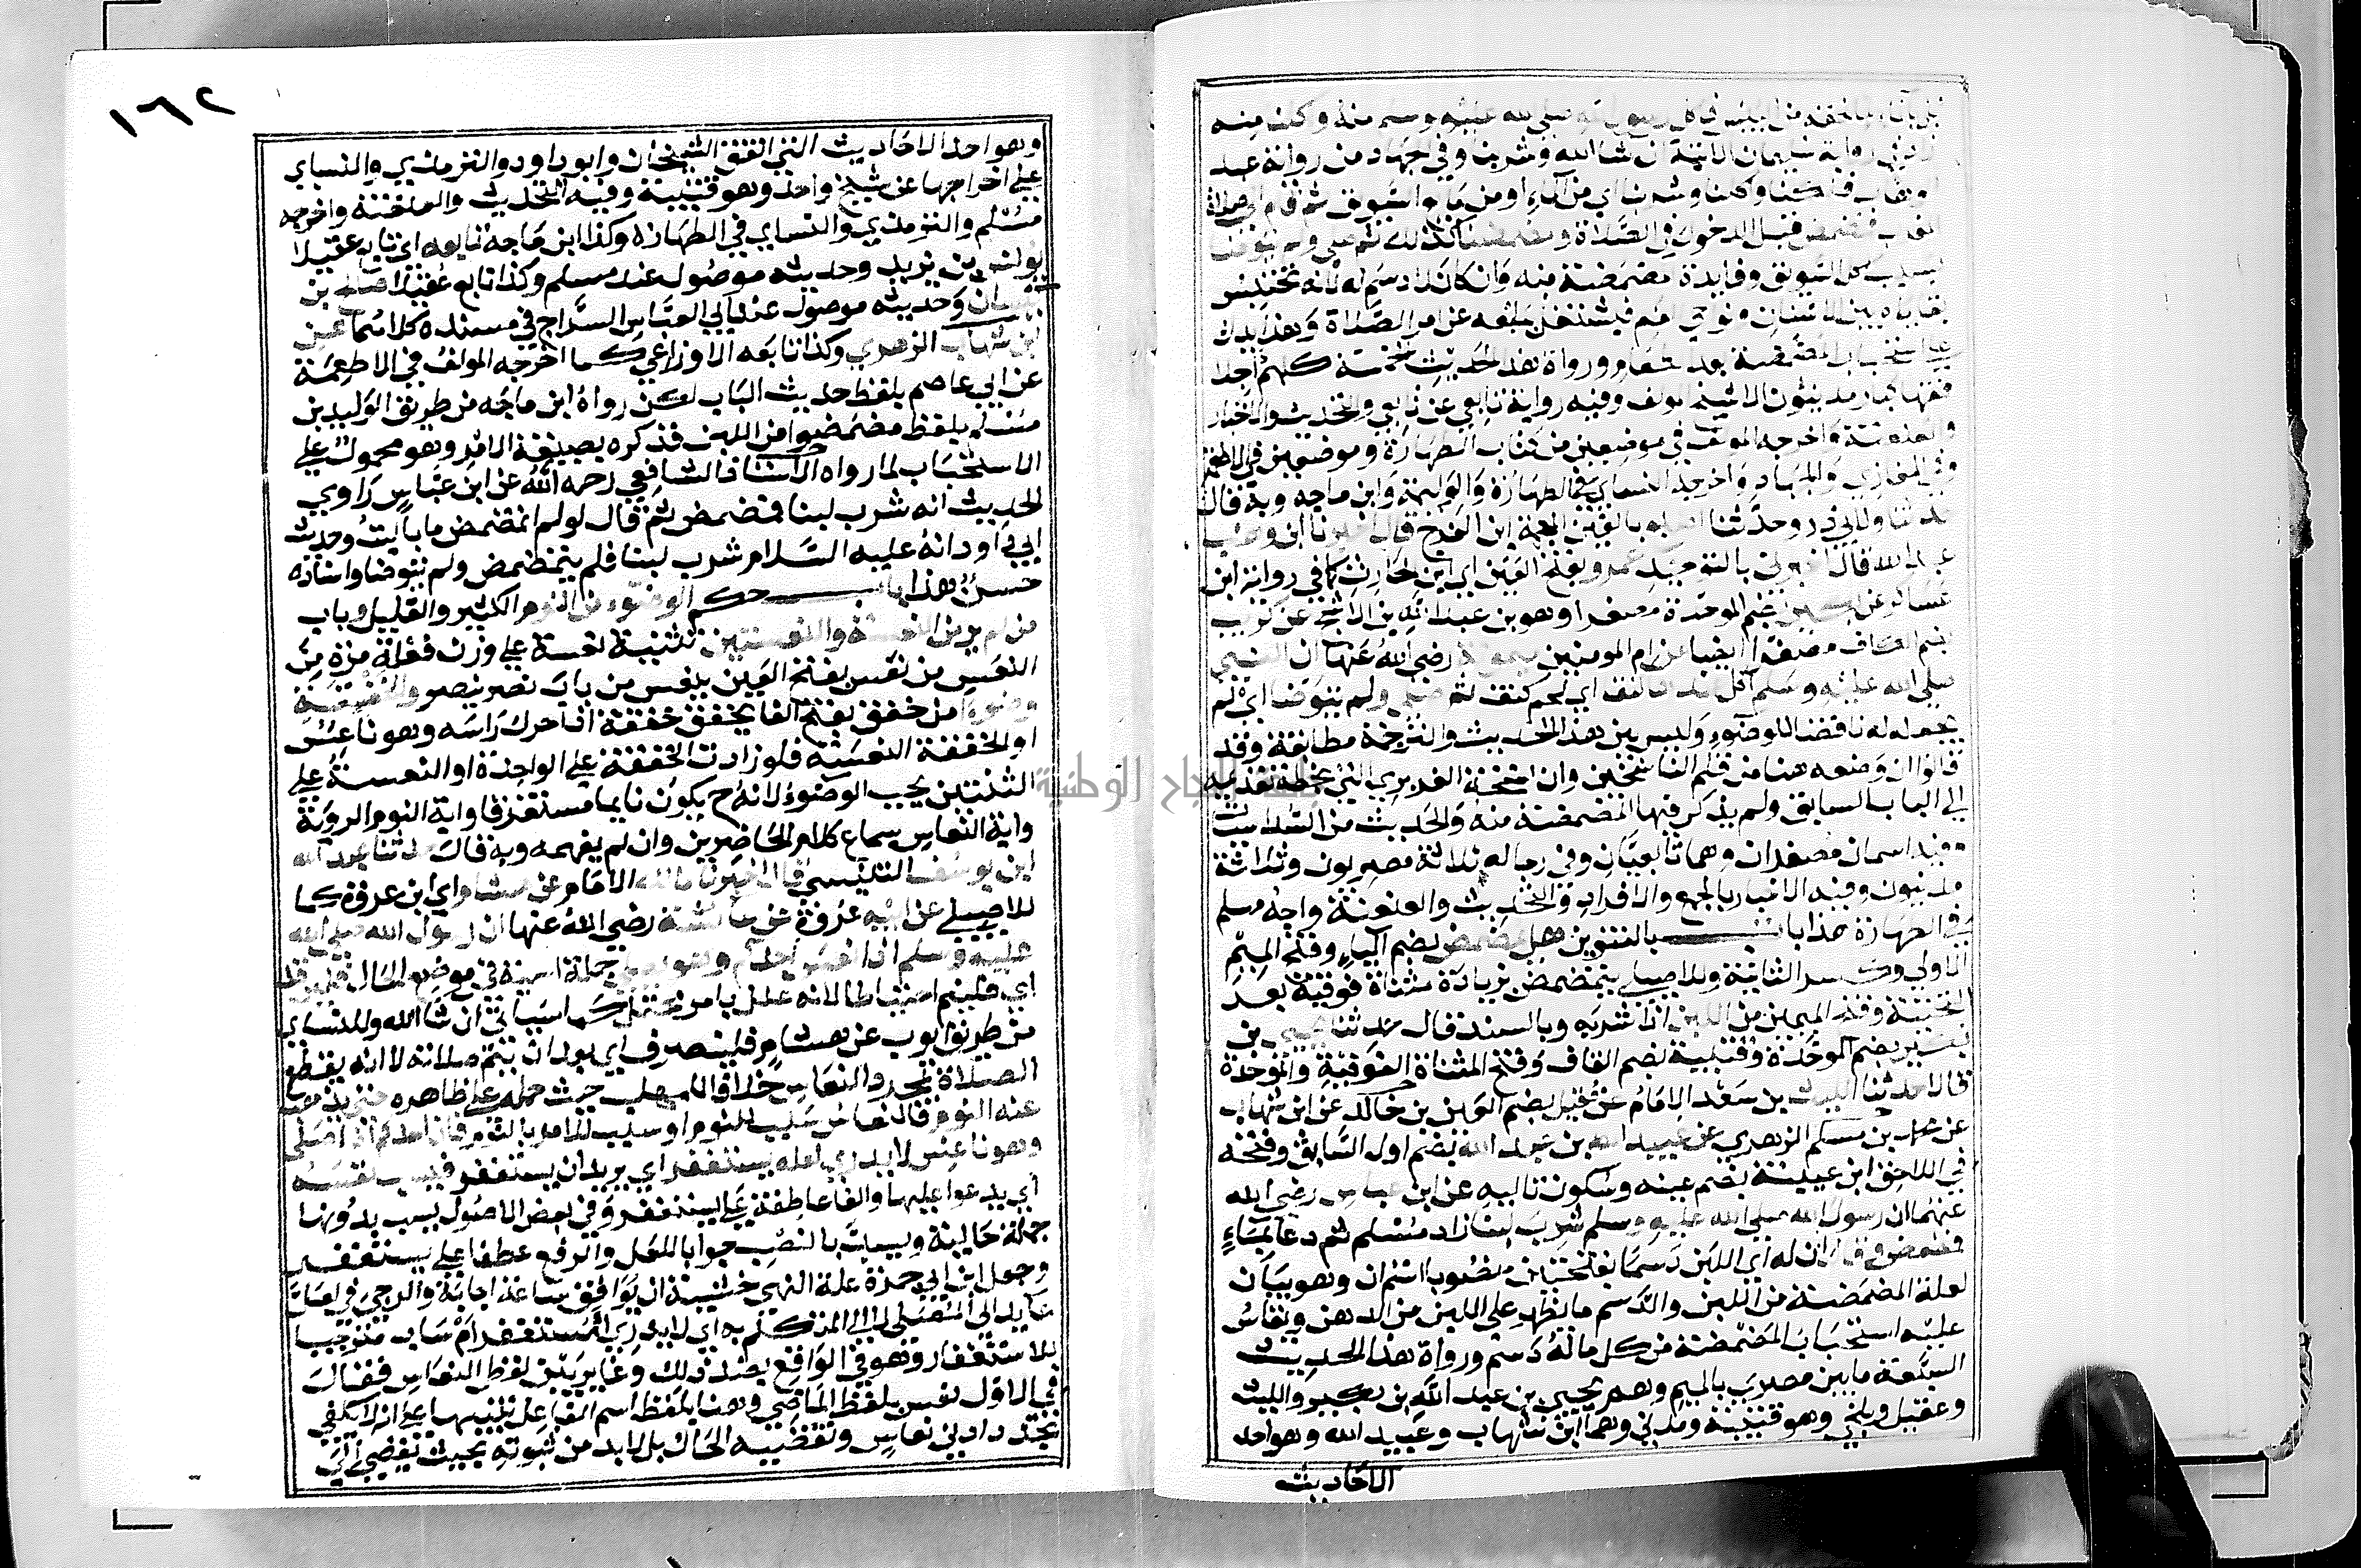 صلى الله عليه وسلم منه وكلنا منه
رواية سليمان الاتية ان شا الله وشربنا وفي الجهاد من رواية عبد
الوهاب فلكنا واكلنا وشربنا اي من الماء او من مايع السويق ثم قام الى صلاة
المغرب فمضمض قبل الدخول في الصلاة ومضمضنا كذلك ثم صلى ولم يتوضا
بسبب اكل السويق وفايدة مضمضة منه وان كان لا دسم له لانه تحتبس
بقاياه بين الاسنان ونواحي الفم فيشتغل ببلعه عن امر الصلاة وهذا يدل
على استحباب المضمضة بعد الطعام ورواة هذا الحديث خمسة كلهم اجلا
فقها كبار مدنيون الا شيخ المولف وفيه رواية تابعي عن تابعي والتحديث والاخبار
والعنعنة واخرجه المولف في موضعين من كتاب الطهارة وموضعين في الاطعمة
وفي المغازي والجهاد واخرجه النساي في الطهارة والوليمة وابن ماجه وبه قال
حدثنا ولابي ذر وحدثنا اصبغ بالغين المعجمة ابن الفرج قال اخبرنا ابن وهب
عبد الله قال اخبرني بالتوحيد عمرو بفتح العين اي ابن الحارث كما في رواية ابن
عساكر عن بكير بضم الموحدة مصغرا وهو بن عبد الله بن الاشج عن كريب
بضم الكاف مصغرا ايضا عن ام المومنين ميمونة رضي الله عنها ان النبي
صلى الله عليه وسلم اكل عندها كتفا اي لحم كتف ثم صلى ولم يتوضا اي لم
يجعله ناقضا للوضوء وليس بين هذا الحديث والترجمة مطابقة وقد
قالوا ان وضعه هنا من قلم الناسخين وان نسخة الفربري التي بخطه تقديمه
الى الباب السابق ولم يذكر فيها المضمضة منه والحديث من السداسيات
وفيه اسمان مصغران وهما تابعيان وفي رجاله ثلاثة مصريون وثلاثة
مدنيون وفيه الاخبار بالجمع والافراد والتحديث والعنعنة واخرجه مسلم
في الطهارة هذا باب بالتنوين هل يمضمض بضم الياء وفتح الميم
الاولى وكسر الثانية وللاصيلي يتمضمض بزيادة مثناة فوقية بعد
التحتية وفتح الميمين من اللبن اذا شربه وبالسند قال حدثنا يحيى بن
بكير بضم الموحدة وقتيبة بضم القاف وفتح المثناة الفوقية والموحدة
قالا حدثنا الليث بن سعد الامام عن عقيل بضم العين بن خالد عن ابن شهاب
عن محمد بن مسلم الزهري عن عبيد الله بن عبد الله بضم اول السابق وفتحه
في اللاحق ابن عيينة بضم عينه وسكون تاليه عن ابن عباس رضي الله
عنهما ان رسول الله صلى الله عليه وسلم شرب لبنا زاد مسلم ثم دعا بماء
فمضمض وقال ان له اي اللبن دسما بفتحتين منصوب اسم ان وهو بيان
لعلة المضمضة من اللبن والدسم ما يظهر على اللبن من الدهن ويقاس
عليه استحباب المضمضة من كل ماله دسم ورواة هذا الحديث
السبعة ما بين مصري بالميم وهم يحيى بن عبد الله بن بكير والليث
وعقيل وبلخي وهو قتيبة ومدني وهما ابن شهاب وعبيد الله وهو احد
الاحاديث
١٦٢
وهو احد الاحاديث التي اتفق الشيخان وابو داود والترمذي والنساي
على اخراجها عن شيخ واحد وهو قتيبة وفيه التحديث والعنعنة واخرجه
مسلم والترمذي والنساي في الطهارة وكذا ابن ماجه تابعه اي تابع عقيلا
يونس بن يزيد وحديثه موصول عند مسلم وكذا تابع عقيلا صالح بن
كيسان وحديثه موصول عند ابي العباس السراج في مسنده كلاهما عن
ابن شهاب الزهري وكذا تابعه الاوزاعي كما اخرجه المولف في الاطعمة
عن ابي عاصم بلفظ حديث الباب لكن رواه ابن ماجه من طريق الوليد بن
مسلم بلفظ مضمضوا من اللبن فذكره بصيغة الامر وهو محمول على
الاستحباب لما رواه الاستاذ الشافعي رحمه الله عن ابن عباس راوي
الحديث انه شرب لبنا فمضمض ثم قال لو لم اتمضمض ما باليت وحديث
ابي داود انه عليه السلام شرب لبنا فلم يتمضمض ولم يتوضا واسناده
حسن هذا باب حكم الوضوء من النوم الكثير والقليل وباب
من لم ير من النعسة والنعستين تثنية نعسة على وزن فعلة مرة من
النعس من نعس بفتح العين ينعس من باب نصر ينصر والخفقة
وضوءا من خفق بفتح الفا يخفق خفقة اذا حرك راسه وهو ناعس
او الخفقة النعسة فلو زادت الخفقة على الواحدة او النعسة على
الثنتين يجب الوضوء لانه ح يكون نايما مستغرقا واية النوم الرؤية
واية النعاس سماع كلام الحاضرين وان لم يفهمه وبه قال حدثنا عبد الله
ابن يوسف التنيسي قال اخبرنا مالك الامام عن هشام اي ابن عروة كما
للاصيلي عن ابيه عروة عن عائشة رضي الله عنها ان رسول الله صلى الله
عليه وسلم اذا نعس احدكم وهو يصلي جملة اسمية في موضع الحال فليرقد
اي فلينم احتياطا لانه علل بامر محتمل كما سياتي ان شا الله وللنساي
من طريق ايوب عن هشام فلينصرف اي بعد ان يتم صلاته لا انه يقطع
الصلاة بمجرد النعاس خلافا للمهلب حيث حمله على ظاهره حتى يذهب
عنه النوم فالنعاس سبب للنوم او سبب للامر بالنوم فان احدكم اذا صلى
وهو ناعس لا يدري لعله يستغفر اي يريد ان يستغفر فيسب نفسه
اي يدعوا عليها والفا عاطفة على يستغفر وفي بعض الاصول يسب بدونها
جملة حالية ويسب بالنصب جوابا للعل والرفع عطفا على يستغفر
وجعل ابن ابي جمرة علة النهي خشية ان يوافق ساعة اجابة والترجي في لعل
عايد الى المصلي لا الى المتكلم به اي لا يدري امستغفر ام ساب مترجيا
للاستغفار وهو في الواقع بضد ذلك وغاير بين لفظ النعاس فقال
في الاول نعس بلفظ الماضي وهنا بلفظ اسم الفاعل تنبيها على انه لا يكفي
تجدد ادنى نعاس وتقضيه الحال بل لابد من ثبوته بحيث يفضي الى